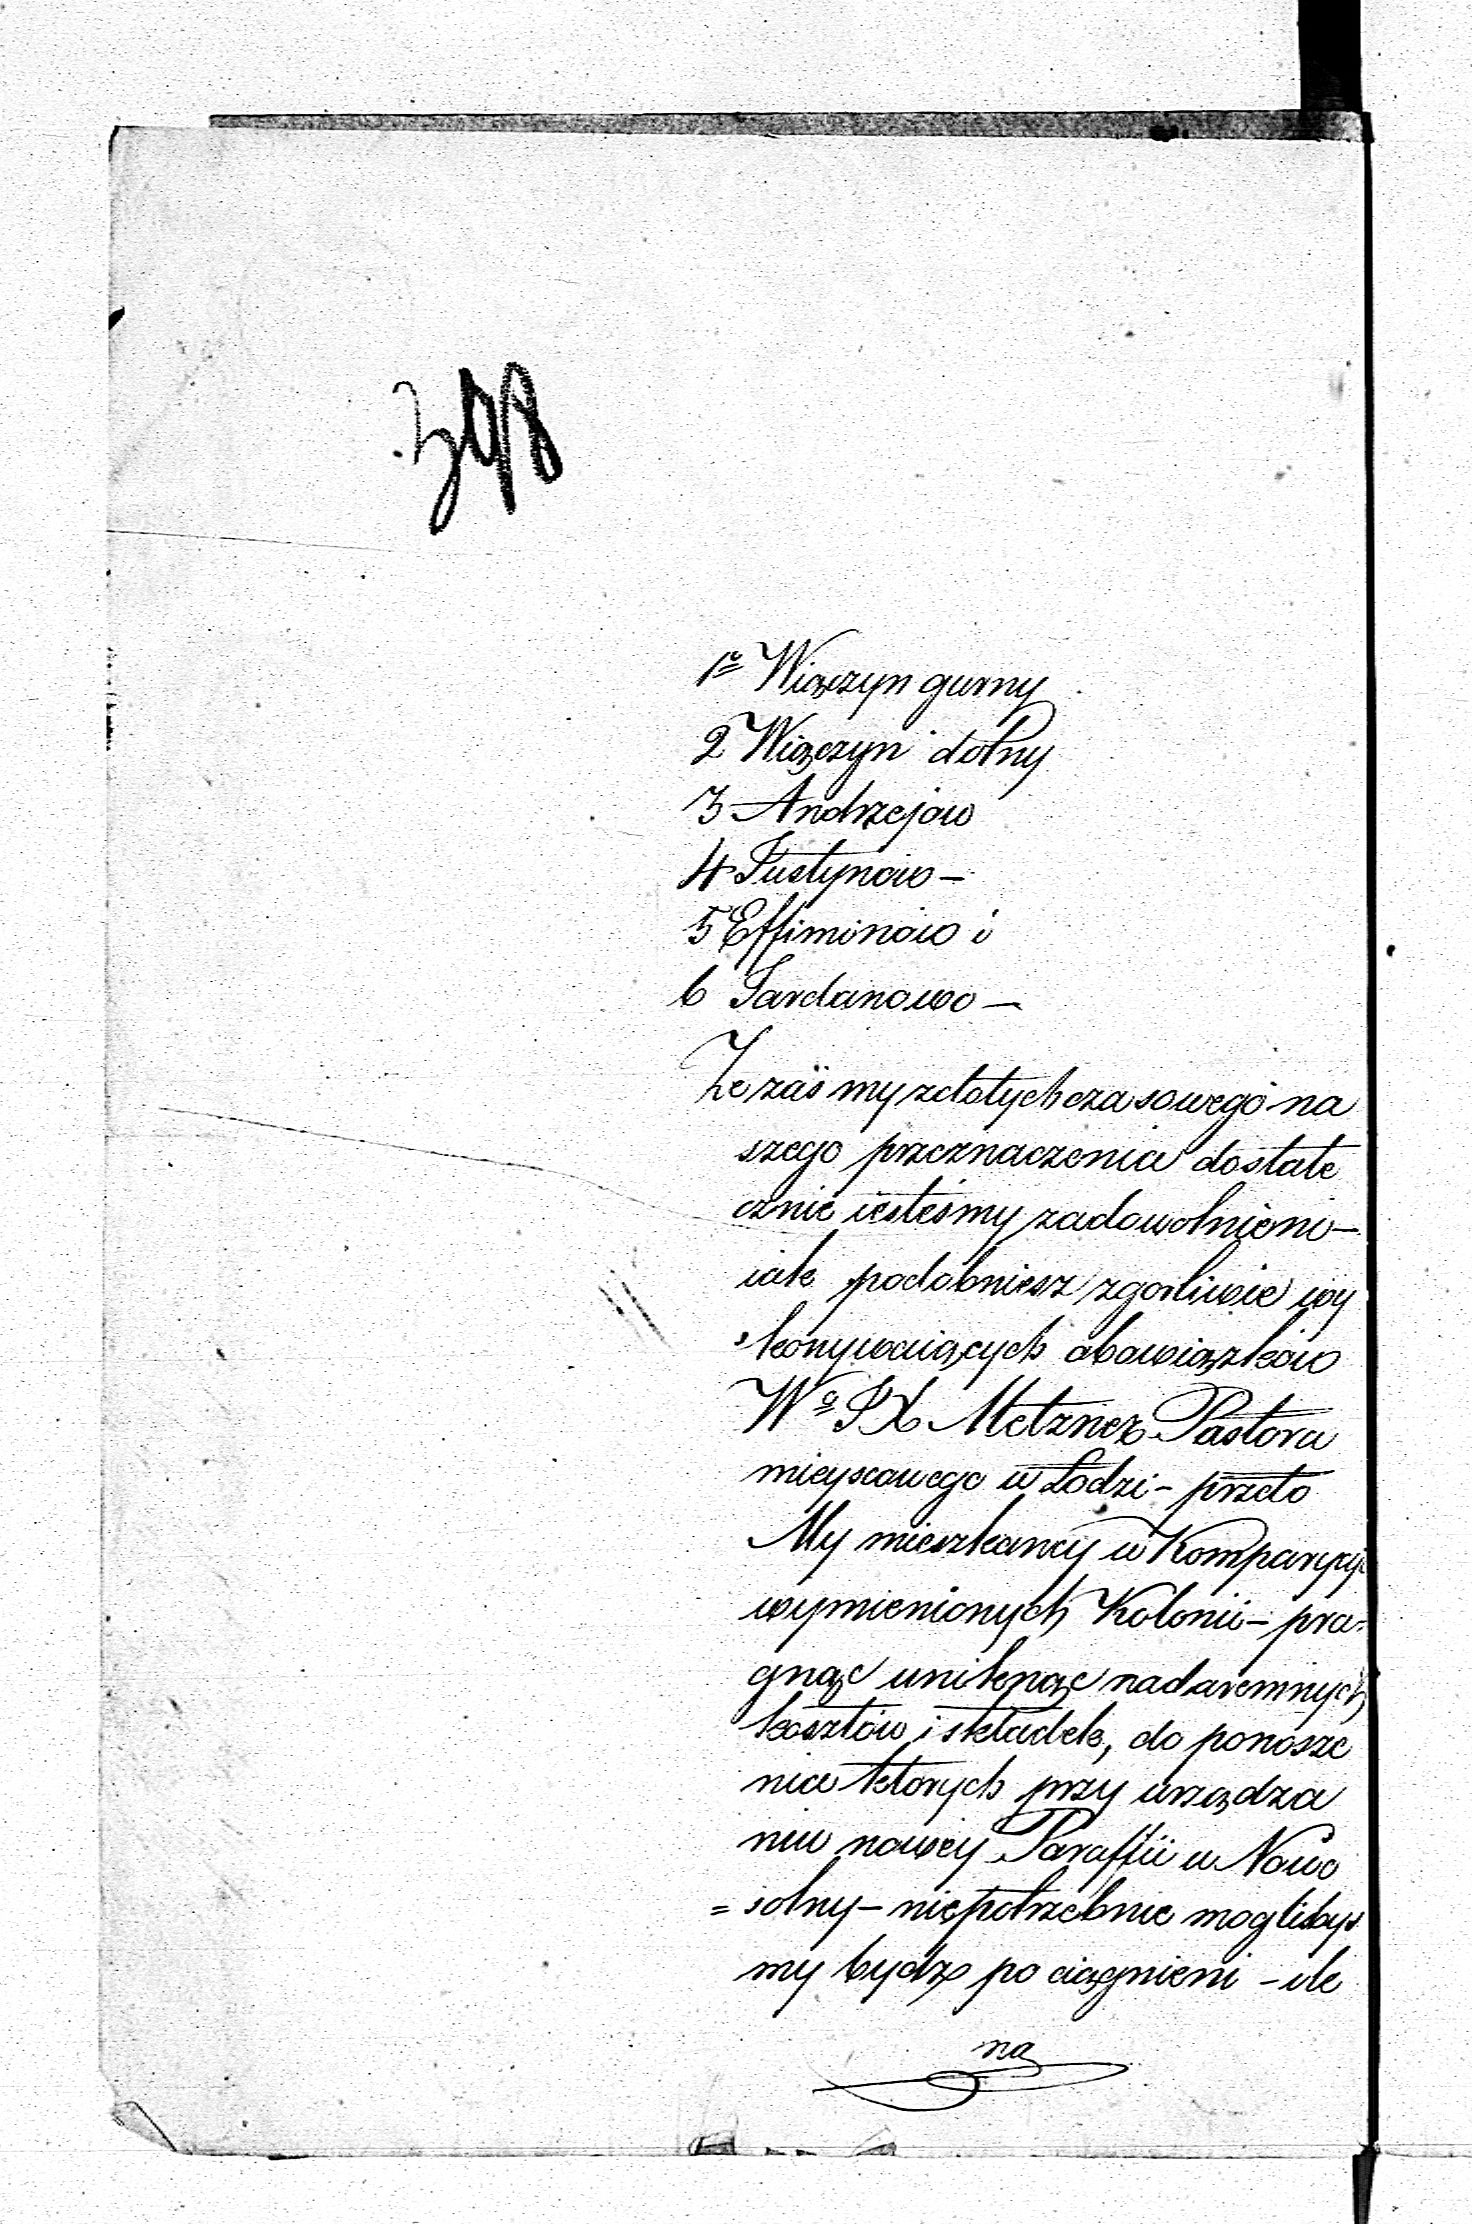 398
1o Wiączyn gurny
2 Wiączyn dolny
3 Andrzejow
4 Justynow –
5 Effiminów i
6 Jardanowo –
Że zaś my z dotychczasowego na
szego przeznaczenia dostate
cznie iesteśmy zadowolnieni –
iak podobniesz zgorliwie wy
konywaiących obowiązków
Wo JX Metzner Pastora
mieyscowego w Łodzi – przeto
My mieszkancy w Komparycyi
wymienionych Kolonii – pra=
gnąc uniknąc nadaremnych
kosztów i składek, do ponosze
nia ktorych przy urządza
niu nowéy Paraffii w Nowo
= solny – niepotrzebnie moglibyś
my bydz pociągnieni – ile
na